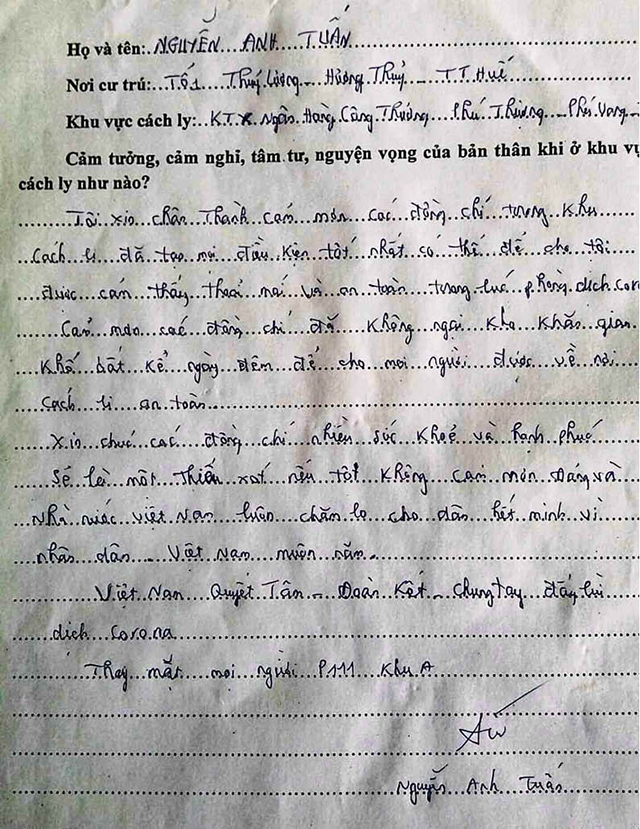 Họ và tên: NGUYỄN ANH TUẤN
Nơi cư trú: Tổ 1 Thuỷ Lương - Hương Thuỷ - T.T.Huế
Khu vực cách ly: K.T.X Ngân Hàng Công Thương Phú Thượng - Phú Vang
Cảm tưởng, cảm nghĩ, tâm tư, nguyện vọng của bản thân khi ở khu vự
cách ly như nào?
Tôi xin chân thành cảm mơn các đồng chí trong khu
cách li đã tạo mọi điều kiện tốt nhất có thể để cho tôi
được cản thấy thoải mái và an toàn trong lúc phòng dịch coro
Cảm mơn các đồng chí đã không ngại khó khăn gian
khổ bất kể ngày đêm để cho mọi người được về nơi
cách li an toàn
Xin chúc các đồng chí nhiều sức khoẻ và hạnh phúc
Sẽ là một thiếu xót nếu tôi không cảm mơn Đảng và
nhà nước Việt Nam luôn chăm lo cho dân hết mình vì
nhân dân - Việt Nam muôn năm.
Việt Nam Quyết Tâm - Đoàn Kết - chung tay đẩy lùi
dịch corona
Thay mặt mọi người P111 khu A
Nguyễn Anh Tuấn